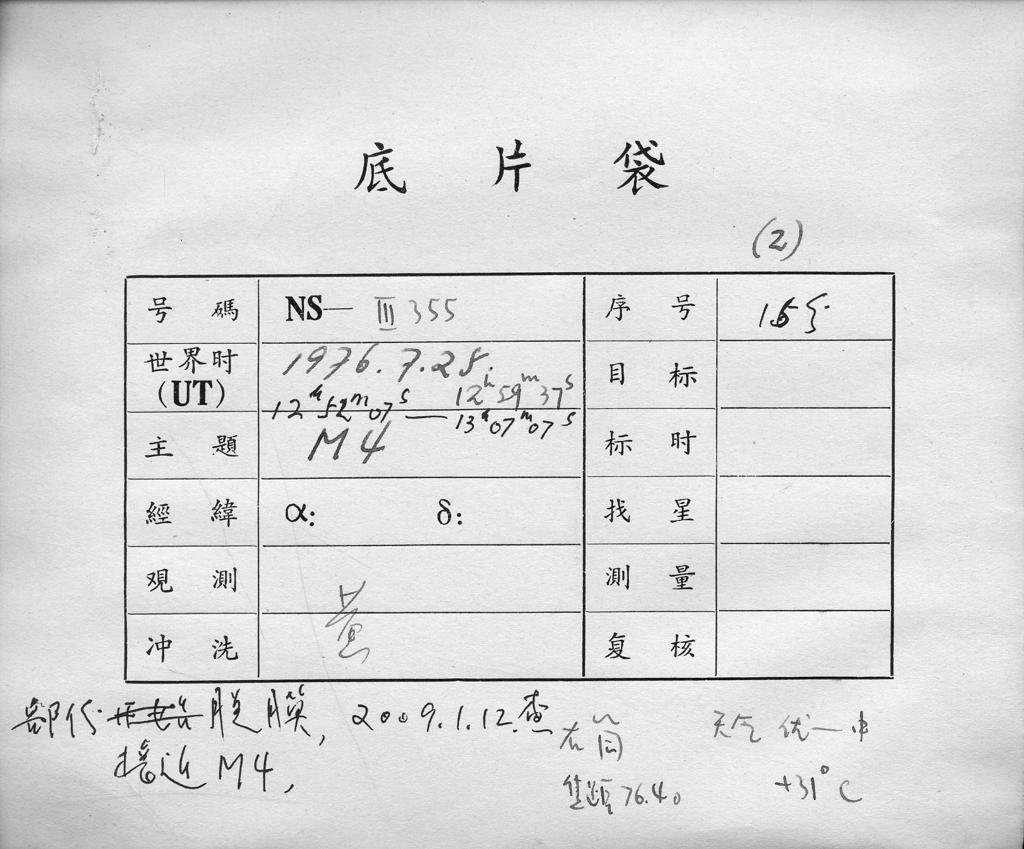 底片袋
(2)
号碼 NS— III 355 序号 15分
世界时 (UT) 1976.7.28. 目标
12h 59m 37s
12h 52m 07s — 13h 07m 07s
主題 M4 标时
經緯 α: δ: 找星
观測 測量
冲洗 黄 复核
部份 脱膜, 2009.1.12.查
接近 M4,
右筒 天气 优—中
焦距 76.40 +31°C